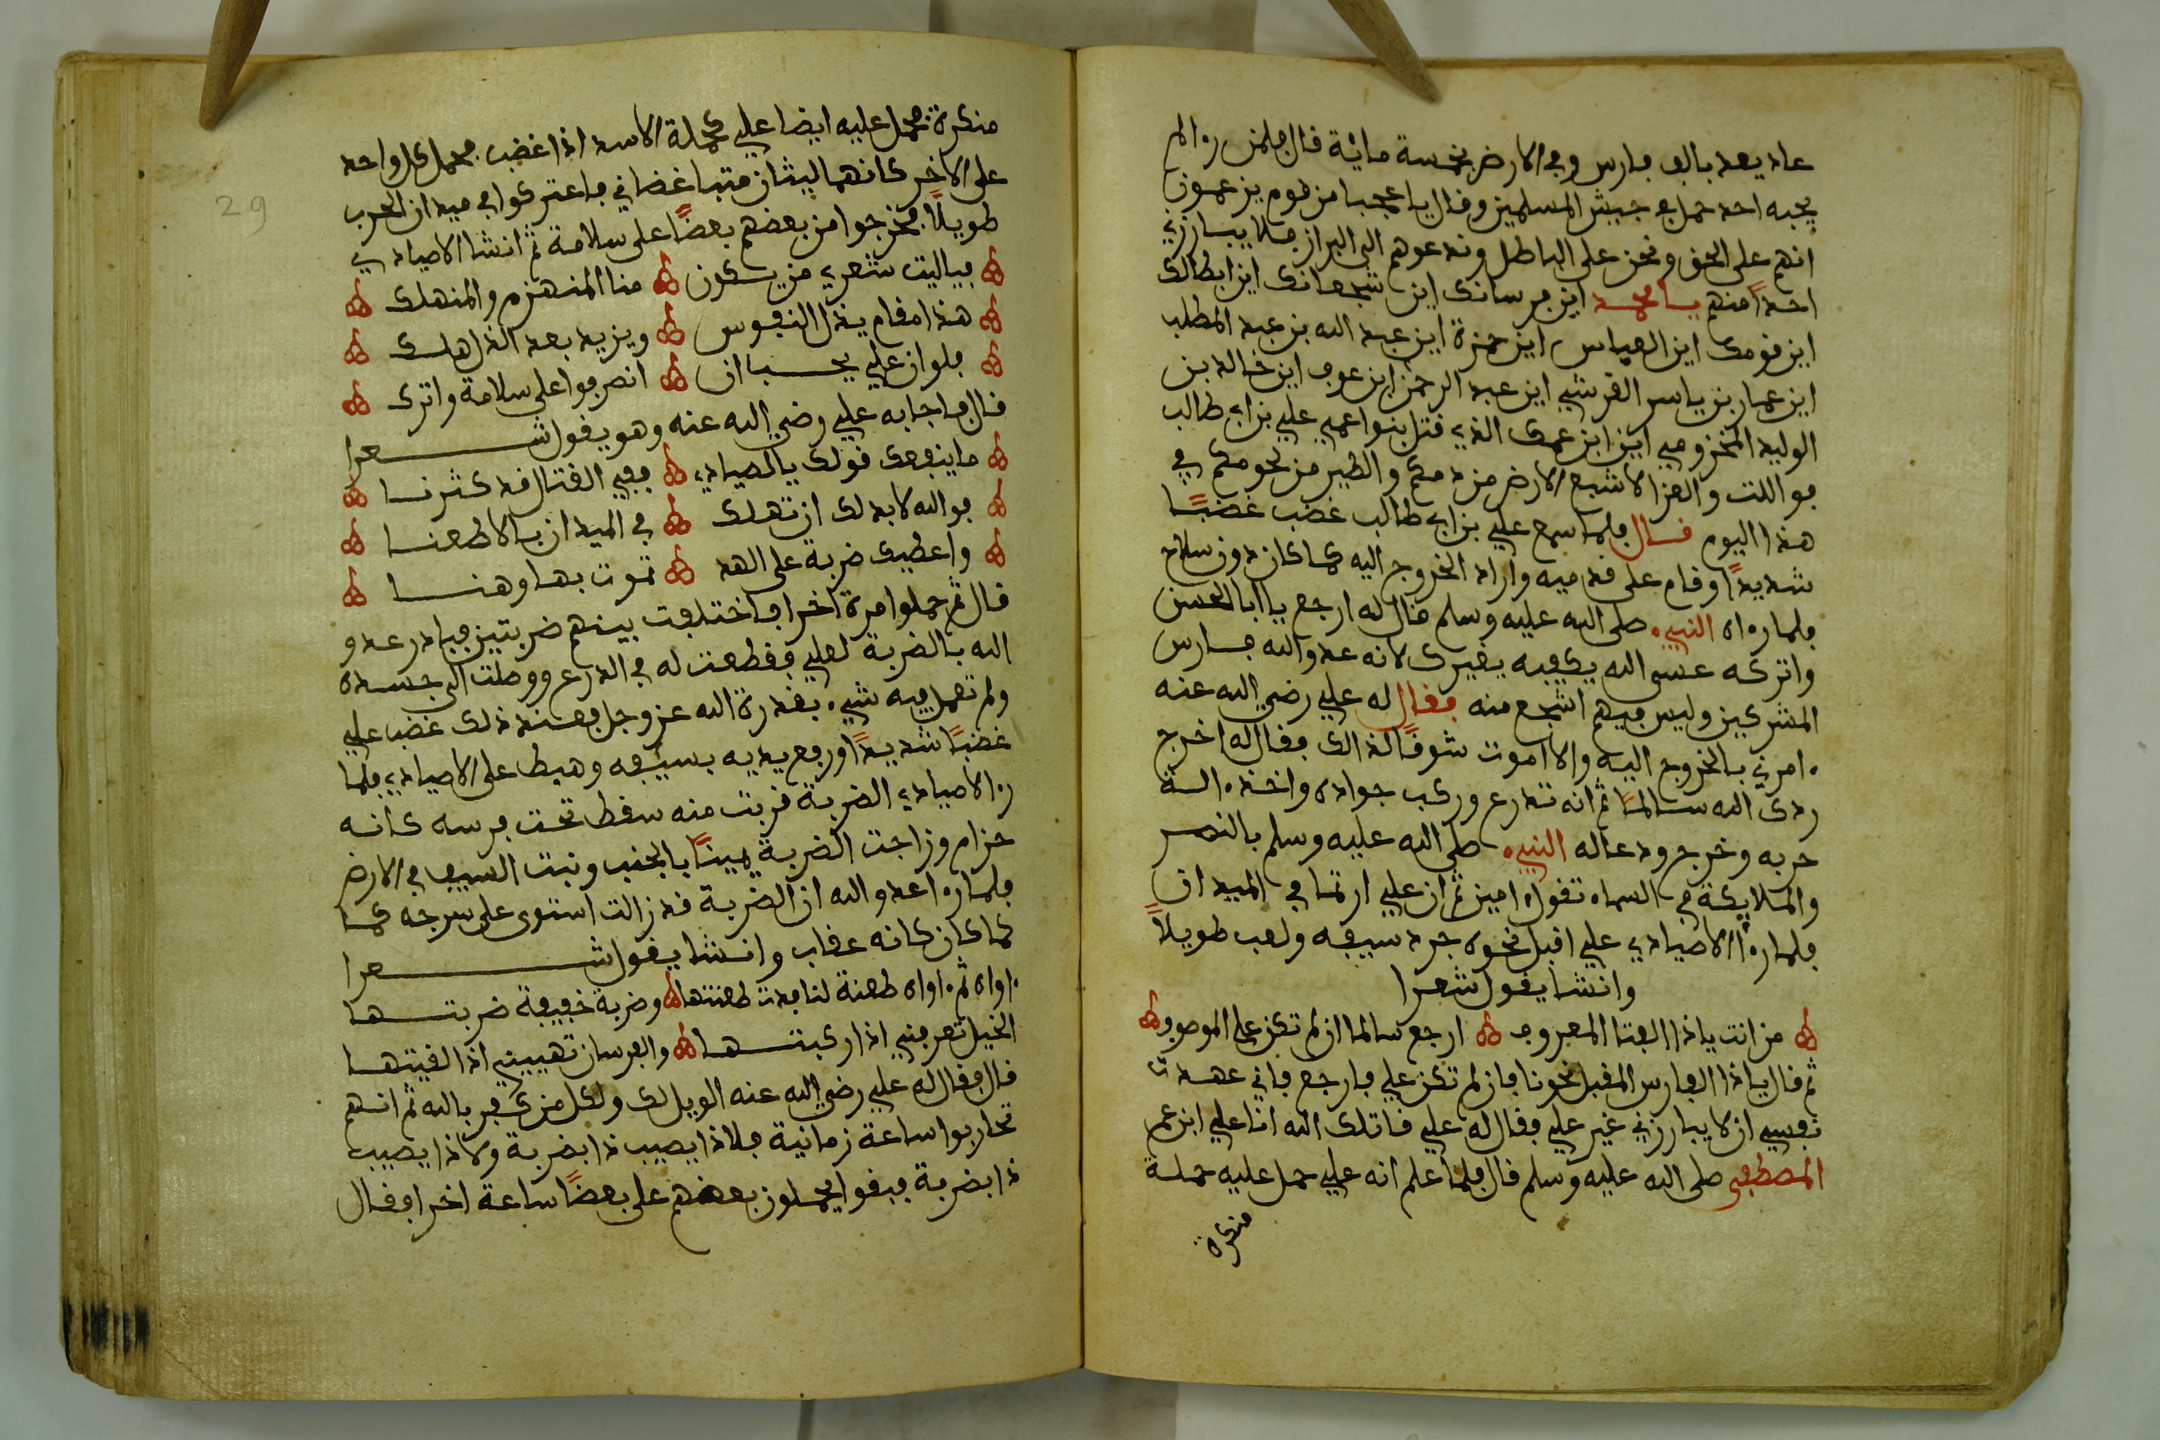 عاد يعد بالف فارس وفي الارض بخمسة مائة قال فلمن راه لم
يجبه احد حمل في جيش المسلمين وقال يا عجبا من قوم يزعمون
انهم على الحق ونحن على الباطل وندعوهم الى البراز فلا يبارزني
احدا منهم يا محمد اين فرسانك اين شجعانك اين ابطالك
اين قومك اين العباس اين حمزة اين عبد الله بن عبد المطلب
اين عمار بن ياسر القرشي اين عبد الرحمن ابن عوف اين خالد بن
الوليد المخزومي اين ابن عمك الذي قتل بنوا عمي علي بن ابي طالب
فواللت والعزا لاشبع الارض من دمكم والطير من لحومكم في
هذا اليوم قال فلما سمع علي بن ابي طالب غضب غضبا
شديدا وقام على قدميه واراد الخروج اليه كما كان دون سلاح
فلما راه النبيء صلى الله عليه وسلم قال له ارجع يا ابا الحسن
واتركه عسى الله يكفيه بغيرك لانه عدو الله فارس
المشركين وليس فيهم اشجع منه فقال له علي رضي الله عنه
ءامرني بالخروج اليه والا اموت شوقا لذالك فقال له اخرج
ردك الله سالما ثم انه تدرع وركب جواده واخذ ءالة
حربه وخرج ودعا له النبيء صلى الله عليه وسلم بالنصر
والملايكة في السماء تقول ءامين ثم ان علي ارتما في الميدان
فلما رءا الاصيادي علي اقبل نحوه جرد سيفه ولعب طويلا
وانشا يقول شعرا
من انت ياذا الفتا المعروف ارجع سالما ان لم تكن علي الموصوف
ثم قال ياذا الفارس المقبل نحونا فان لم تكن علي فارجع فاني عهدت
نفسي ان لا يبارزني غير علي فقال له علي قاتلك الله انا علي ابن عم
المصطفى صلى الله عليه وسلم قال فلما علم انه علي حمل عليه حملة
منكرة
29
منكرة فحمل عليه ايضا علي كحملة الاسد اذا غضب فحمل كل واحد
على الاخر كانهما ليثان متباغضاني فاعتركوا في ميدان الحرب
طويلا فخرجوا من بعضهم بعضا على سلامة ثم انشا الاصيادي
فياليت شعري من يكون منا المنهزم والمنهلك
هذا مقام يذل النفوس ويزيد بعد الذل هلك
فلوان علي يحب ان انصرفوا على سلامة واترك
قال فاجابه علي رضي الله عنه وهو يقول شعرا
ما ينفعك قولك يالصيادي ففي القتال قد كثرنا
فوالله لا بد لك ان تهلك في الميدان بالاطعنا
واعطيك ضربة على الهد تموت بها وهنا
قال ثم حملوا مرة اخرا فاختلفت بينهم ضربتين فبادر عدو
الله بالضربة لعلي فقطعت له في الدرع ووصلت الى جسده
ولم تعمل فيه شيء بقدرة الله عز وجل فعند ذلك غضب علي
غضبا شديدا ورفع يديه بسيفه وهبط على الاصيادي فلما
را الاصيادي الضربة قربت منه سقط تحت فرسه كانه
حزام وزاجت الضربة يمينا بالجنب ونبت السيف في الارض
فلما راء عدو الله ان الضربة قد زالت استوى على سرجه كما
كما كان كانه عقاب وانشا يقول شعرا
ءاواه ثم ءاواه طعنة لنا فدت طعنتها وضربة خفيفة ضربتها
الخيل تعرفني اذا ركبتها والفرسان تهيبني اذا لقيتها
قال فقال له علي رضي الله عنه الويل لك ولكل من كفر بالله ثم انهم
تحاربوا ساعة زمانية فلاذا يصيب ذا بضربة ولاذا يصيب
ذا بضربة فبقوا يحملون بعضهم على بعضا ساعة اخرا فقال